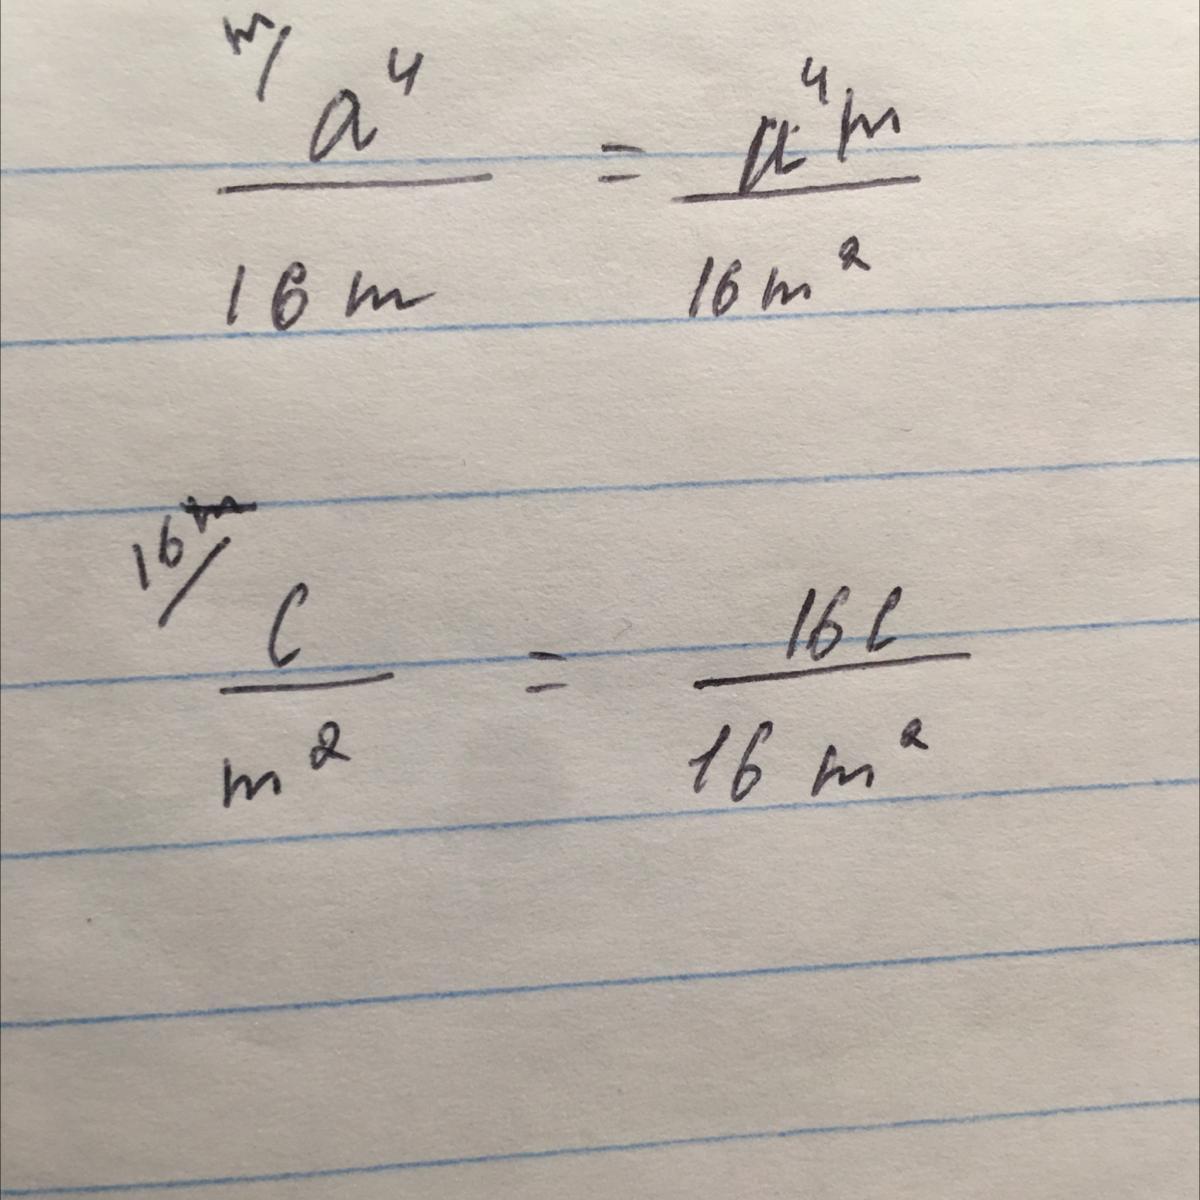 m/ a⁴/16m = a⁴m/16m²
16/ c/m² = 16c/16m²